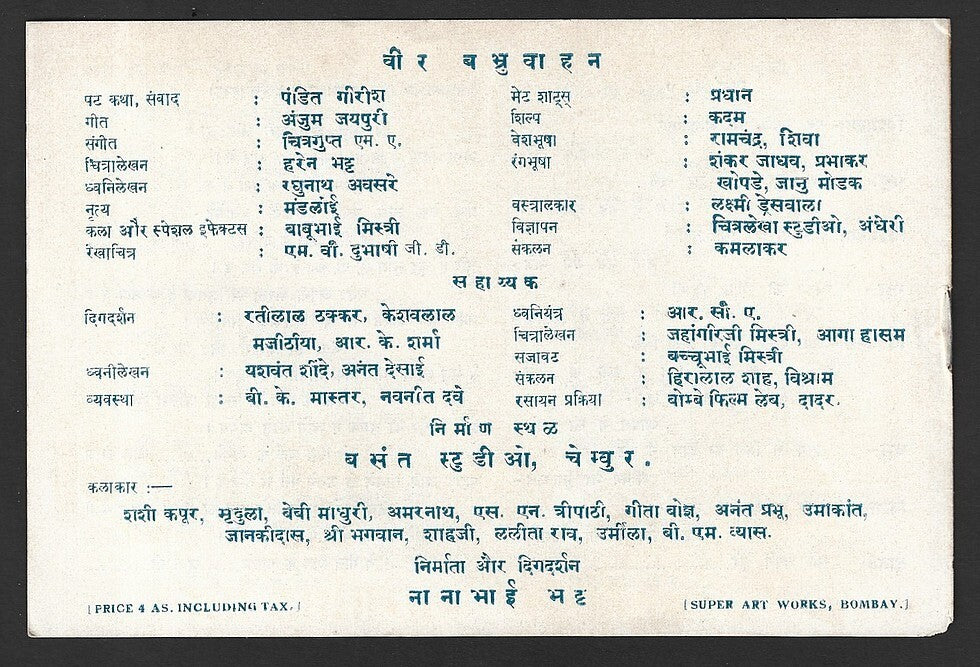 वीर बभ्रुवाहन
पट कथा, संवाद : पंडित गीरीश
गीत : अंजुम जयपुरी
संगीत : चित्रगुप्त एम. ए.
चित्रालेखन : हरेन भट्ट
ध्वनिलेखन : रघुनाथ अवसरे
नृत्य : मंडलोई
कला और स्पेशल इफेक्टस : बाबूभाई मिस्त्री
रेखाचित्र : एम. वी. दुभाषी जी. डी.
मेट शाट्स् : प्रधान
शिल्प : कदम
वेशभूषा : रामचंद्र, शिवा
रंगभूषा : शंकर जाधव, प्रभाकर
खोपडे, जानु मोडक
वस्त्रालंकार : लक्ष्मी ड्रेसवाला
विज्ञापन : चित्रलेखा स्टुडीओ, अंधेरी
संकलन : कमलाकर
सहाय्यक
दिगदर्शन : रतीलाल ठक्कर, केशवलाल
मजीठीया, आर. के. शर्मा
ध्वनीलेखन : यशवंत शींदे, अनंत देसाई
व्यवस्था : बी. के. मास्तर, नवनीत दवे
ध्वनियंत्र : आर. सी. ए.
चित्रालेखन : जहांगीरजी मिस्त्री, आगा हासम
सजावट : बच्चूभाई मिस्त्री
संकलन : हिरालाल शाह, विश्राम
रसायन प्रक्रिया : बोम्बे फिल्म लेब, दादर.
निर्माण स्थळ
बसंत स्टुडीओ, चेम्बुर.
कलाकार :—
शशी कपूर, मृदुला, बेबी माधुरी, अमरनाथ, एस. एन. त्रीपाठी, गीता बोझ, अनंत प्रभू, उमाकांत,
जानकीदास, श्री भगवान, शाहजी, ललीता राव, उर्मीला, बी. एम. व्यास.
निर्माता और दिगदर्शन
नानाभाई भट्ट
[PRICE 4 AS. INCLUDING TAX.]
[SUPER ART WORKS, BOMBAY.]